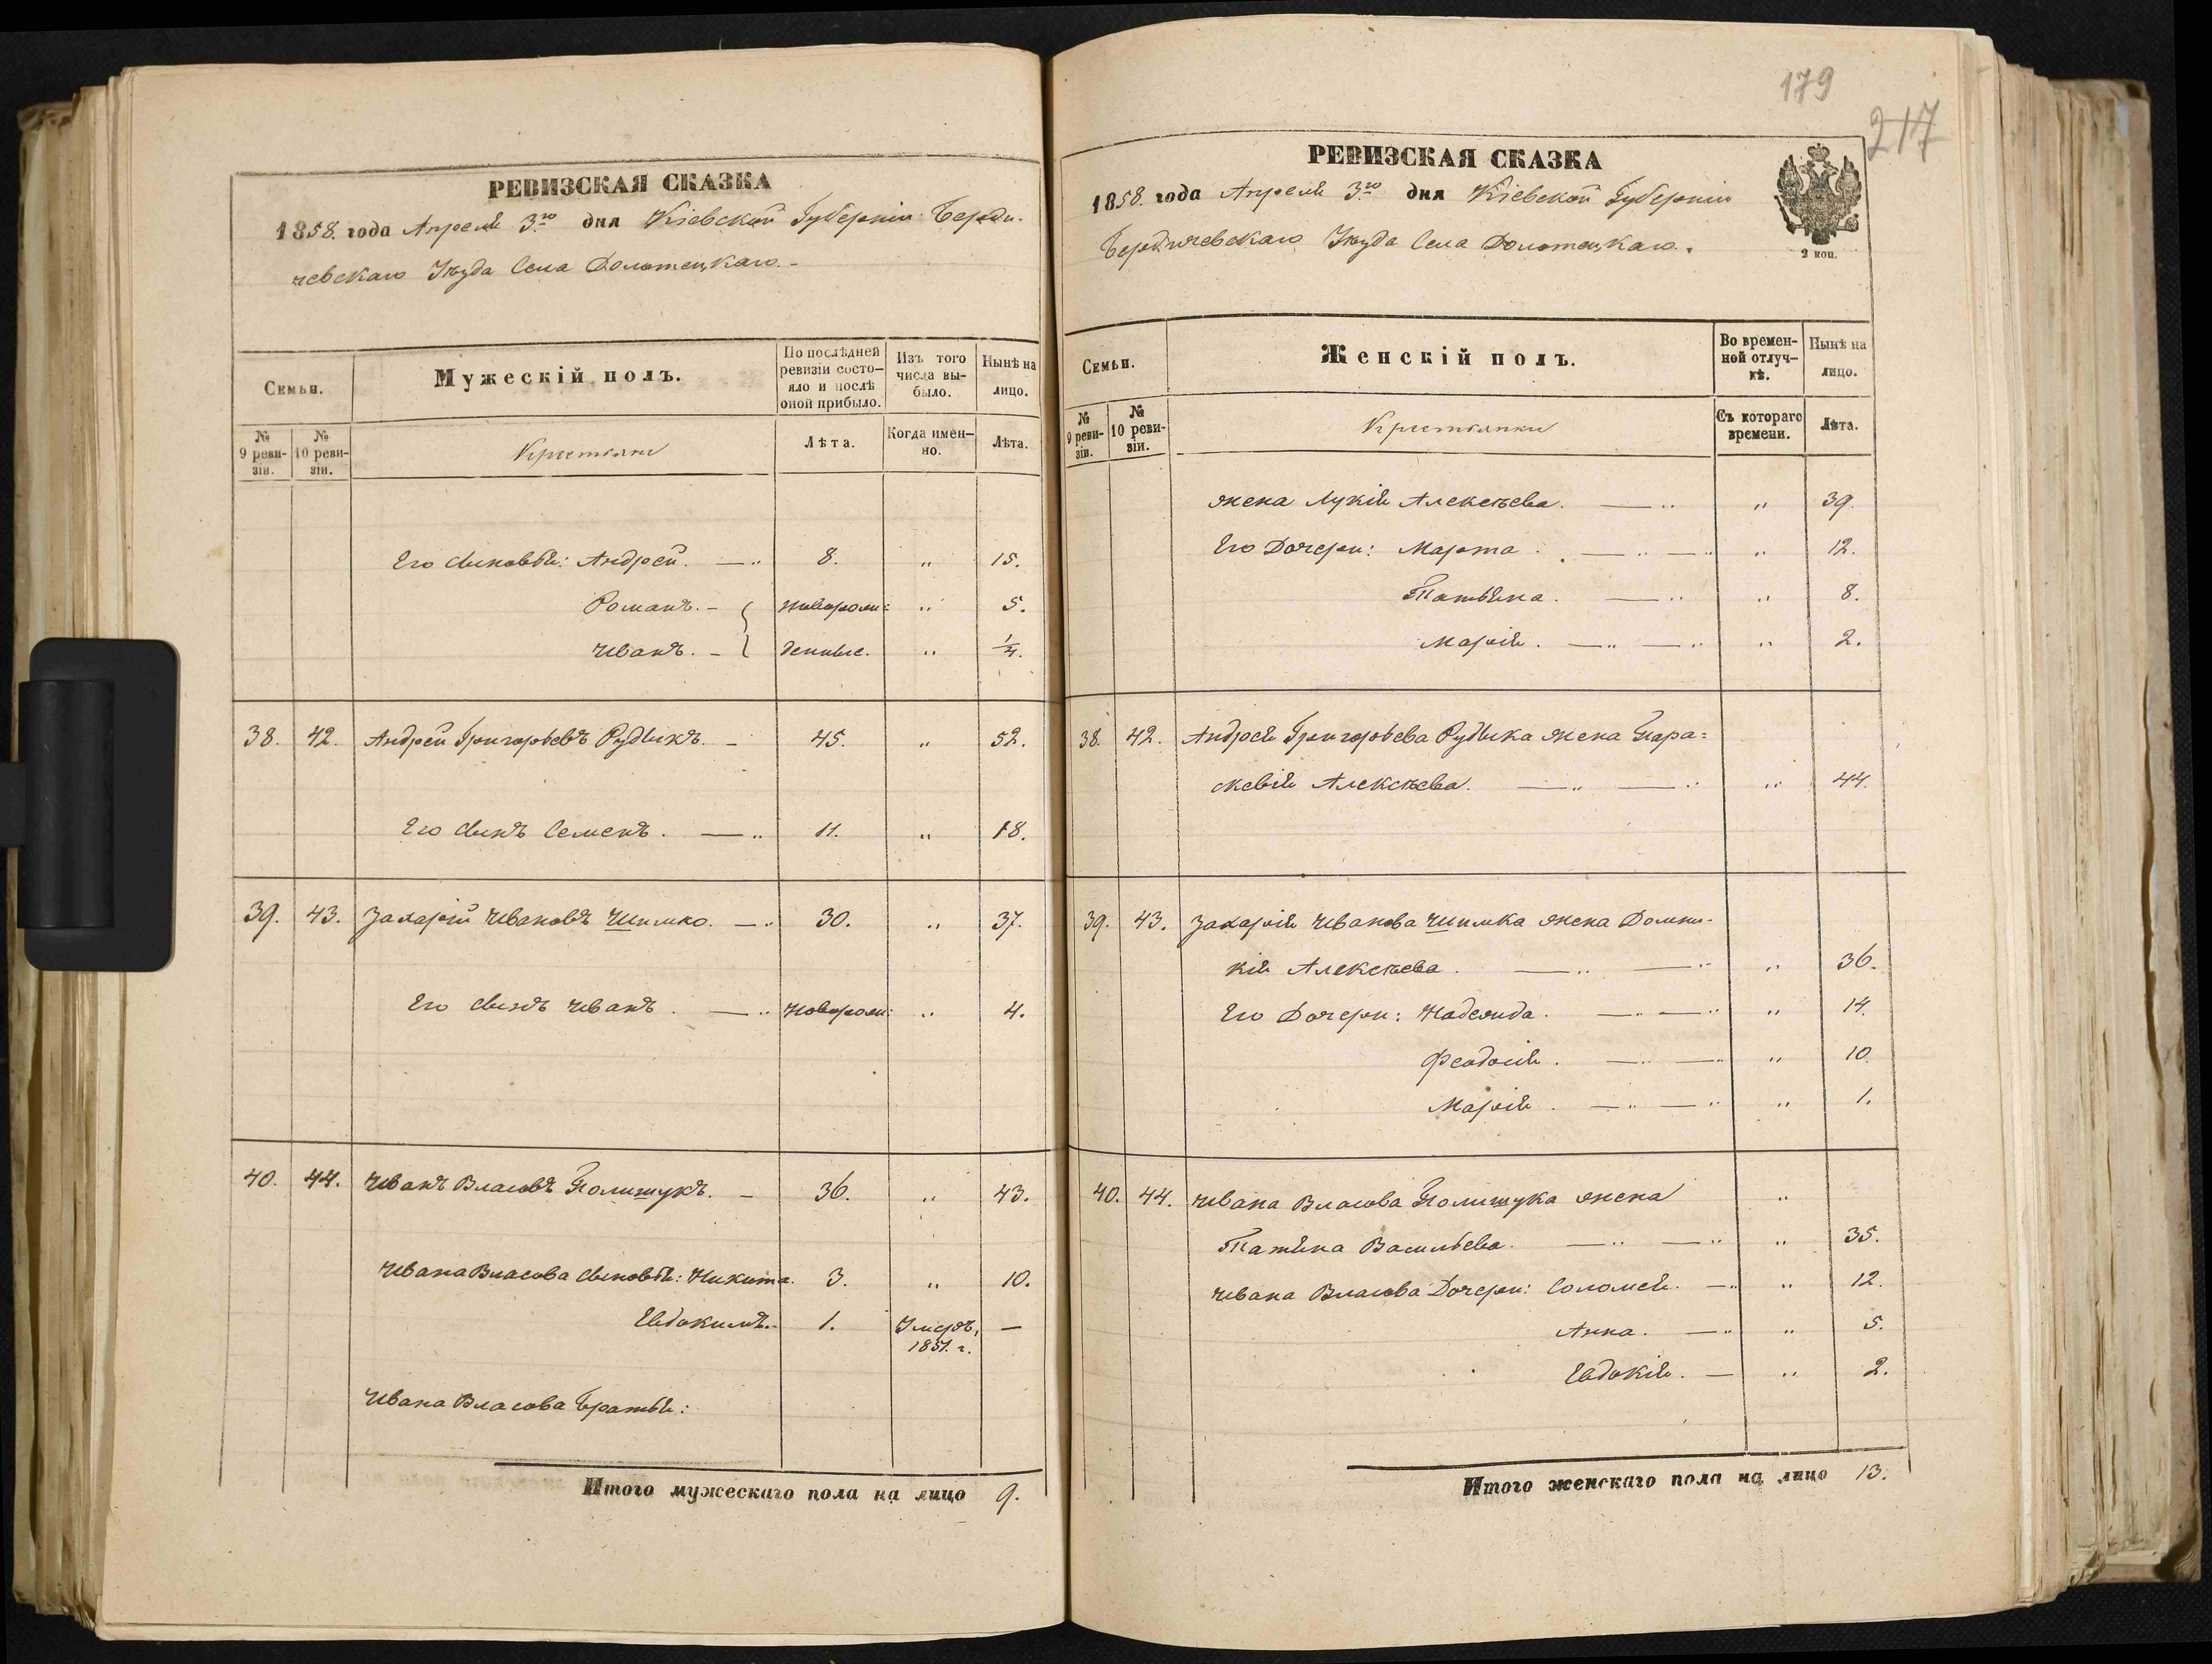 179
217
РЕВИЗСКАЯ СКАЗКА
1858. года Апреля 3го дня Кіевской Губерніи Берди-
чевскаго Уѣзда Села Долотецкаго.-
Семьи.
Мужескій полъ.
По послѣдней ревизіи состояло и послѣ оной прибыло.
Изъ того числа выбыло.
Нынѣ на лицо.
№ 9 ревизіи.
№ 10 ревизіи.
Крестьяне
Лѣта.
Когда имен-но.
Лѣта.
Его сыновья: Андрей. — „ 8. „ 15.
Романъ. - { новорож= „ 5.
Иванъ. - { денные. „ 1/4.
38. 42. Андрей Григорьевъ Рудыкъ. - 45. „ 52.
Его сынъ Семенъ. — „ 11. „ 18.
39. 43. Захарій Ивановъ Шимко. — „ 30. „ 37.
Его сынъ Иванъ. — „ Новорож: „ 4.
40. 44. Иванъ Власовъ Полишукъ. - 36. „ 43.
Ивана Власова сыновья: Никита. 3. „ 10.
Евдокимъ. - 1. Умеръ, —
1851. г.
Ивана Власова Братья:
Итого мужескаго пола на лицо 9.
РЕВИЗСКАЯ СКАЗКА
1858. года Апреля 3го дня Кіевской Губерніи
Бердичевскаго Уѣзда Села Долотецкаго.
2 коп.
Семьи.
Женскій полъ.
Во времен-ной отлуч-кѣ.
Нынѣ на лицо.
№ 9 реви-зіи.
№ 10 реви-зіи.
Крестьянки
Съ котораго времени.
Лѣта.
жена Лукія Алексѣева. — „ „ 39.
Его Дочери: Марта. — „ — „ „ 12.
Татьяна. — „ „ 8.
Марія. — „ — „ „ 2.
38. 42. Андрея Григорьева Рудыка жена Пара=
скевія Алексѣева. — „ — „ „ 44.
39. 43. Захарія Иванова Шимка жена Домни-
кія Алексѣева. — „ — „ „ 36.
Его Дочери: Надежда. — „ — „ „ 14.
Феодосія. — „ — „ „ 10.
Марія. — „ — „ „ 1.
40. 44. Ивана Власова Полишука жена „
Татьяна Васильева. — „ — „ „ 35.
Ивана Власова Дочери: Соломея. — „ „ 12.
Анна. — „ „ 5.
Евдокія. — „ 2.
Итого женскаго пола на лицо 13.